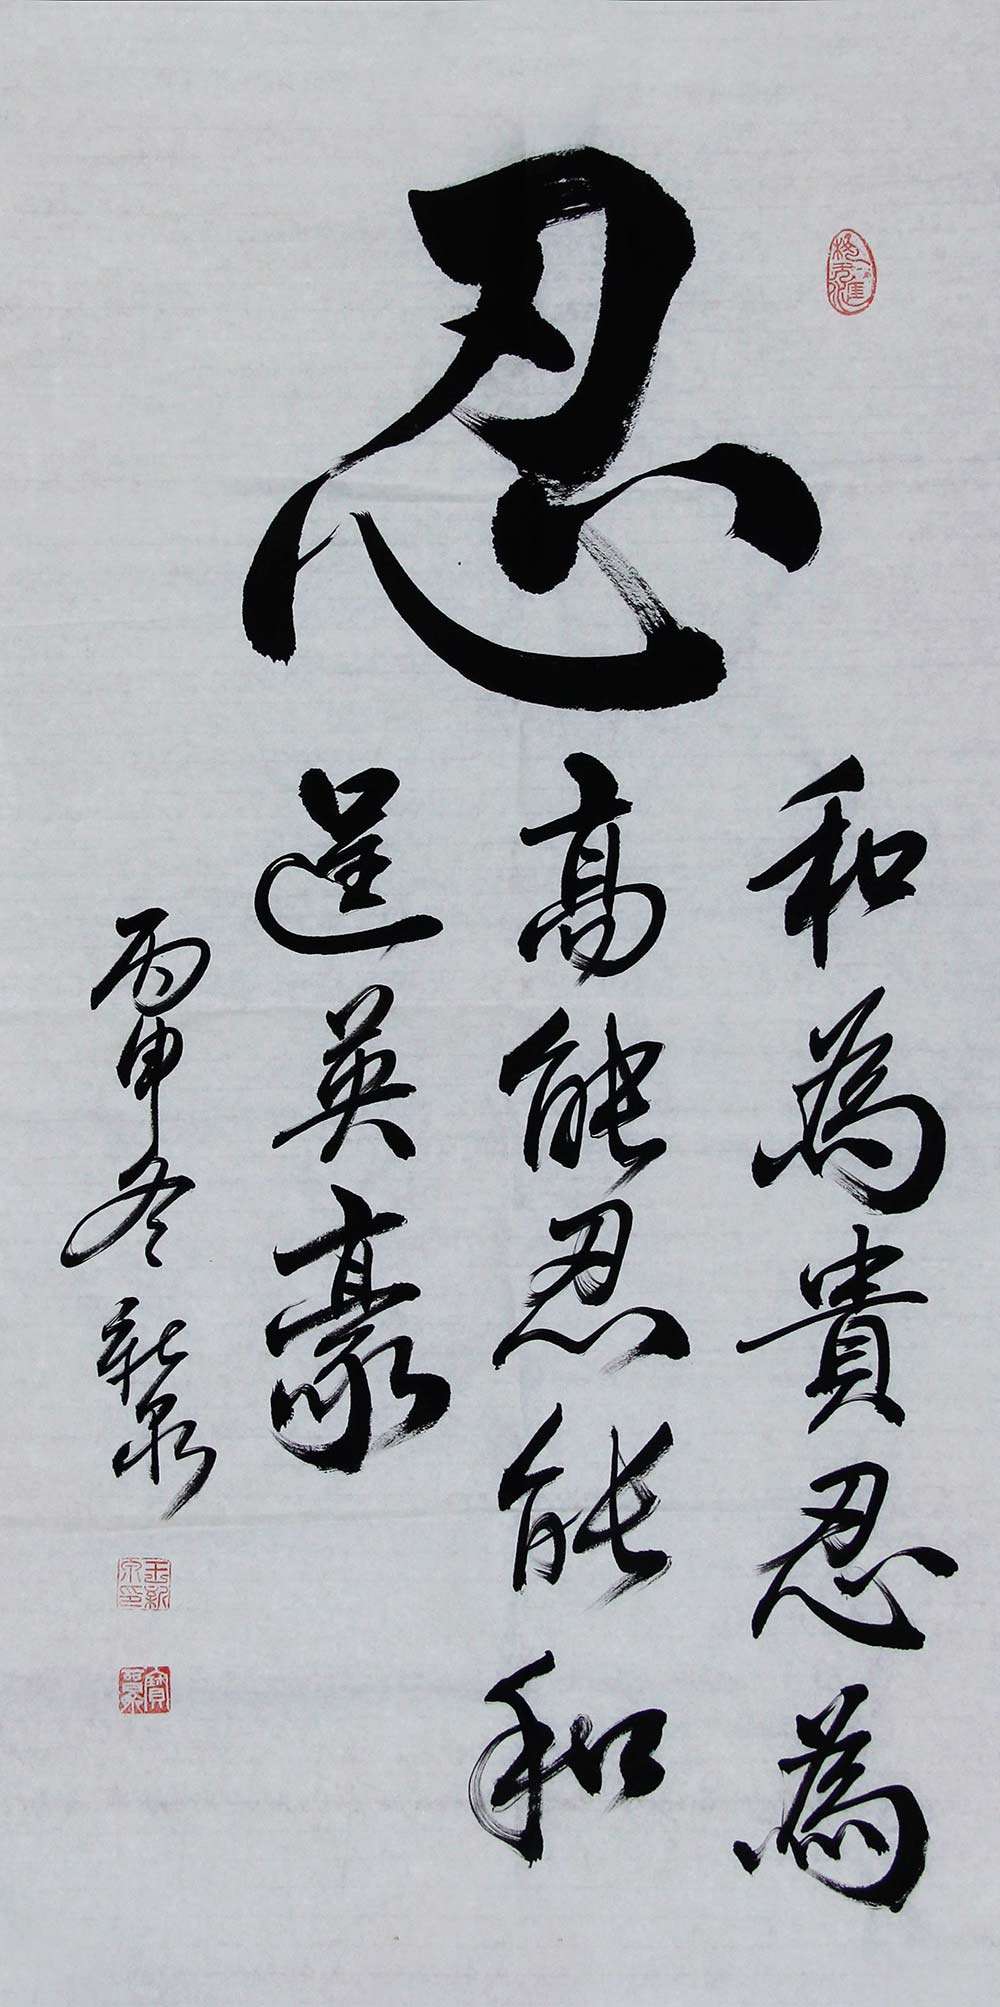 忍
和為貴忍為
高能忍能和
逞英豪
丙申冬新泉